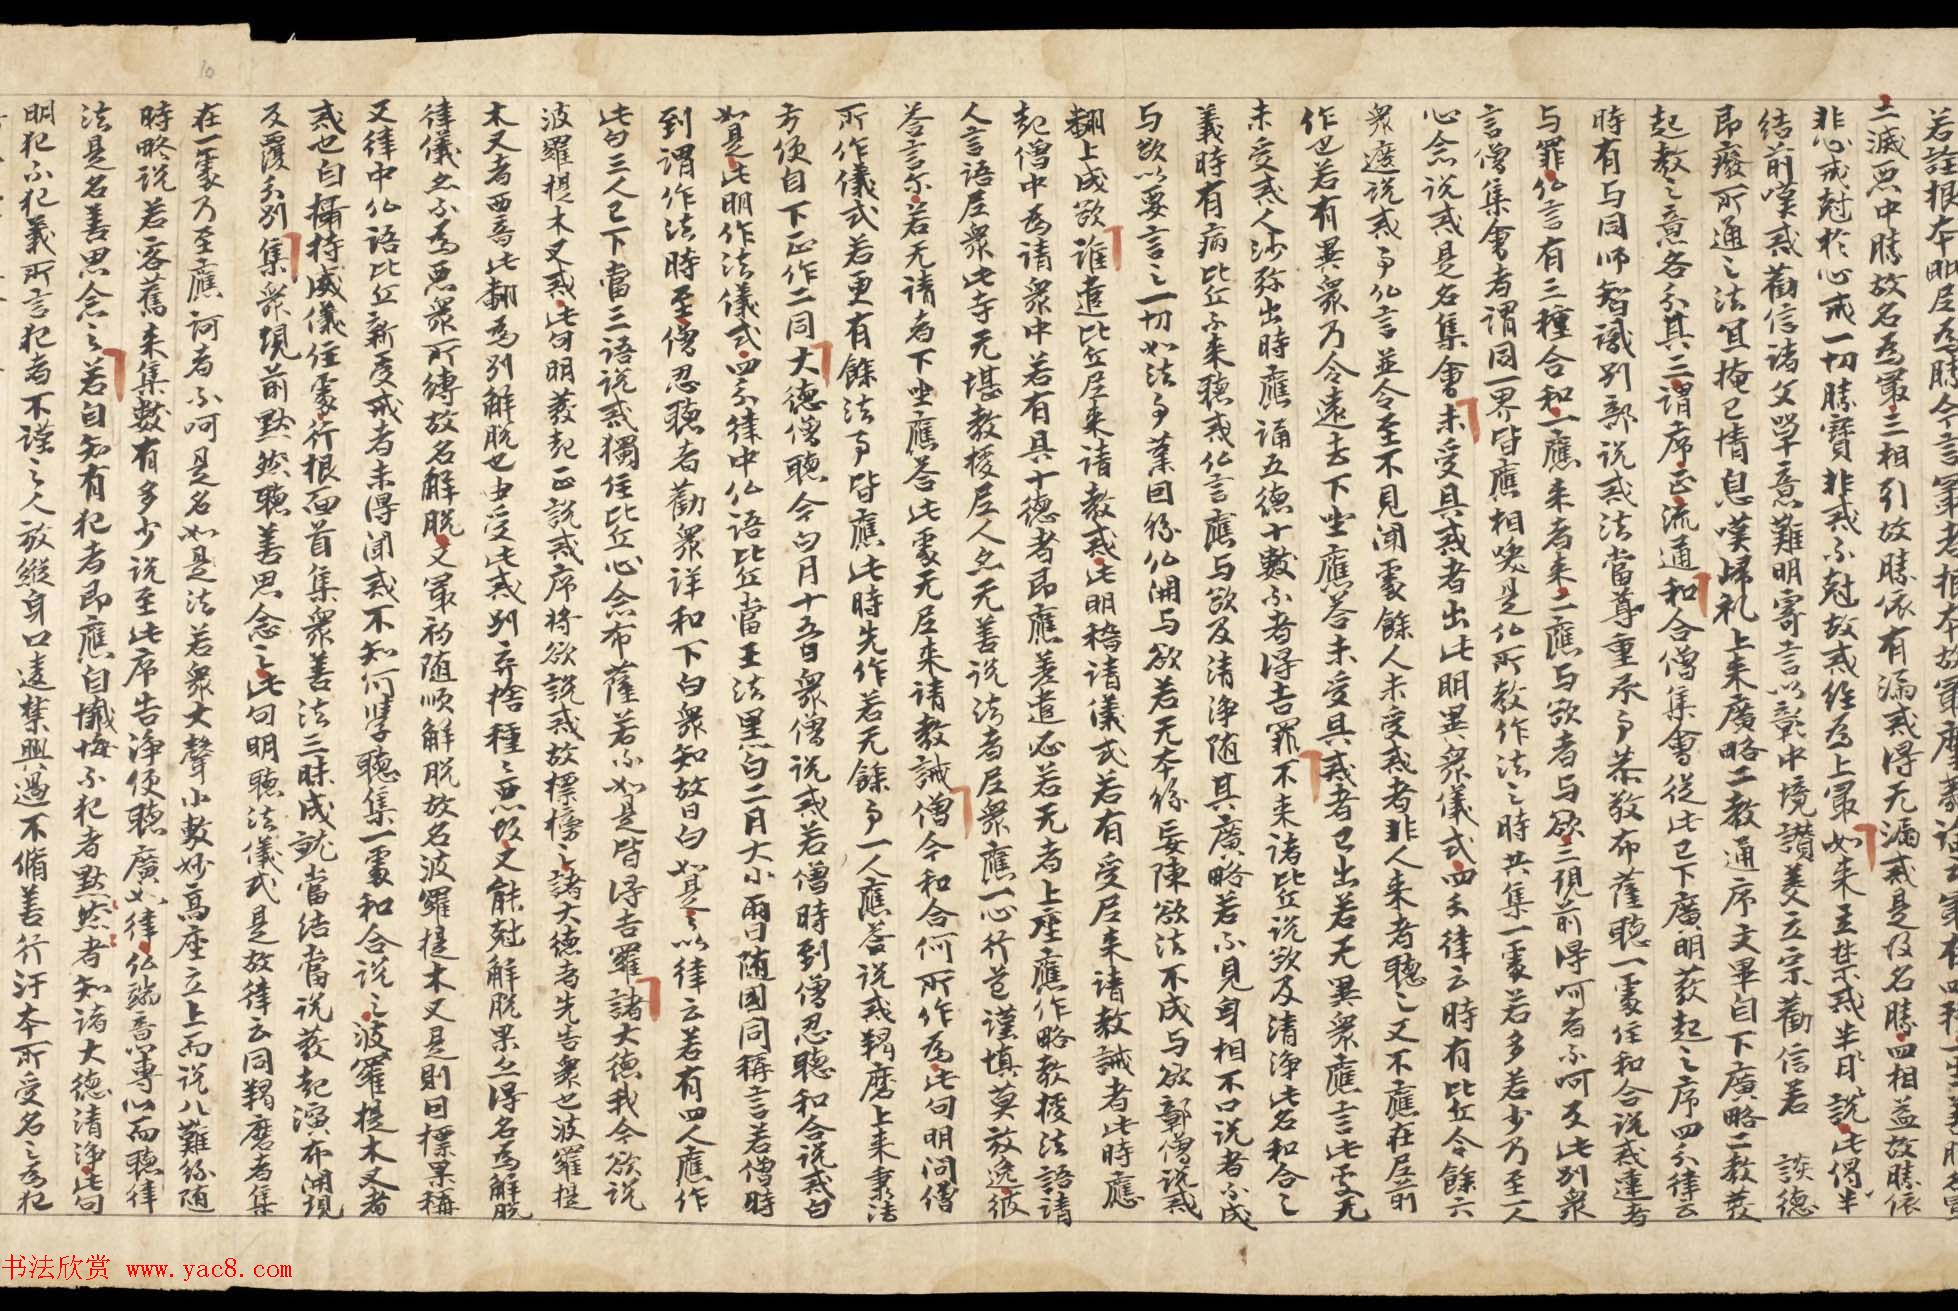 二滅惡中勝故名為最三相引故勝依有漏戒得无漏戒是故名勝四相益故勝依
非心戒尅於心戒一切勝寶非戒不尅故戒経為上最如来立禁戒半月說此偈半
結前嘆戒勸信諸文學意難明寄言以彰中境讃美立宗勸信若 談德
即癈所通之法冝掩已情息嘆歸礼上来廣略二教通序文畢自下廣略二教發
起教之意各分其三謂序正流通和合僧集會従此已下廣明發起之序四分律云
時有与同師智識別部說戒法當尊重承事恭敬布薩聽一處住和合說戒違者
与罪仏言有三種合和一應来者来二應与欲者与欲三現前得呵者不呵反此別衆
言僧集會者謂同一界皆應相喚是仏所教作法之時共集一處若多若少乃至一人
心念說戒是名集會未受具戒者出此明異衆儀式四分律云時有比丘令餘六
衆遮說戒事仏言並令至不見聞處餘人未受戒者非人来者聽之又不應在尼前
作也若有異衆乃令遠去下坐應荅未受具戒者已出若无異衆應言此處无
未受戒人沙弥出時應誦五德十數不者得吉罪不来諸比丘說欲及清浄此名和合之
義時有病比丘不来聽戒仏言應与欲及清浄随其廣略若不見身相不口說者不成
与欲以要言之一切如法事業因緣仏開与欲若无本緣妄陳欲法不成与欲鄣僧說戒
翻上成欲誰遣比丘尼来請教戒此明稽請儀式若有受尼来請教誡者此時應
起僧中為請衆中若有具十德者即應差遣必若无者上座應作略教授法語請
人言語尼衆此寺无堪教授尼人亦无善說法者尼衆應一心行道謹慎莫放逸彼
荅言尔若无請者下坐應荅此處无尼来請教誡僧今和合何所作為此句明問僧
所作儀式若更有餘法事皆應此時先作若无餘事一人應荅說戒羯磨上来秉法
方便自下正作二同大德僧聽今白月十五日衆僧說戒若僧時到僧忍聽和合說戒白
如是此明作法儀式四分律中仏語比丘當王法黑白二月大小兩日随國同稱言若僧時
到謂作法時至僧忍聽者勸衆詳和下白衆知故曰白如是之以律云若有四人應作
此白三人已下當三語說戒獨住比丘心念布薩若不如是皆得吉羅諸大德我今欲說
波羅提木叉戒此句明發起正說戒序将欲說戒故標榜之諸大德者先告衆也波羅提
木叉者西音此翻為別解脫也由受此戒別弃捨種之惡故又能尅解脫果亦得名為解脫
律儀亦不為惡衆所縛故名解脫又最初随順解脫故名波羅提木叉是則因標果稱
又律中仏語比丘新受戒者未得聞戒不知何學聽集一處和合說之波羅提木叉者
戒也自攝持威儀住處行根面首集衆善法三昧成就當結當說發起演布開現
反覆分別集衆現前默然聽善思念之此句明聽法儀式是故律云同羯磨者集
在一處乃至應訶者不呵是名如是法若衆大聲小敷妙高座立上而說八難緣随
時略說若客舊来集數有多少說至此序告浄便聽廣如律仏端意專心而聽律
法是名善思念之若自知有犯者即應自懺悔不犯者默然者知諸大德清浄此句
明犯不犯義所言犯者不謹之人放縱身口違禁興過不脩善行汙本所受名之為犯
书法欣赏 www.yac8.com